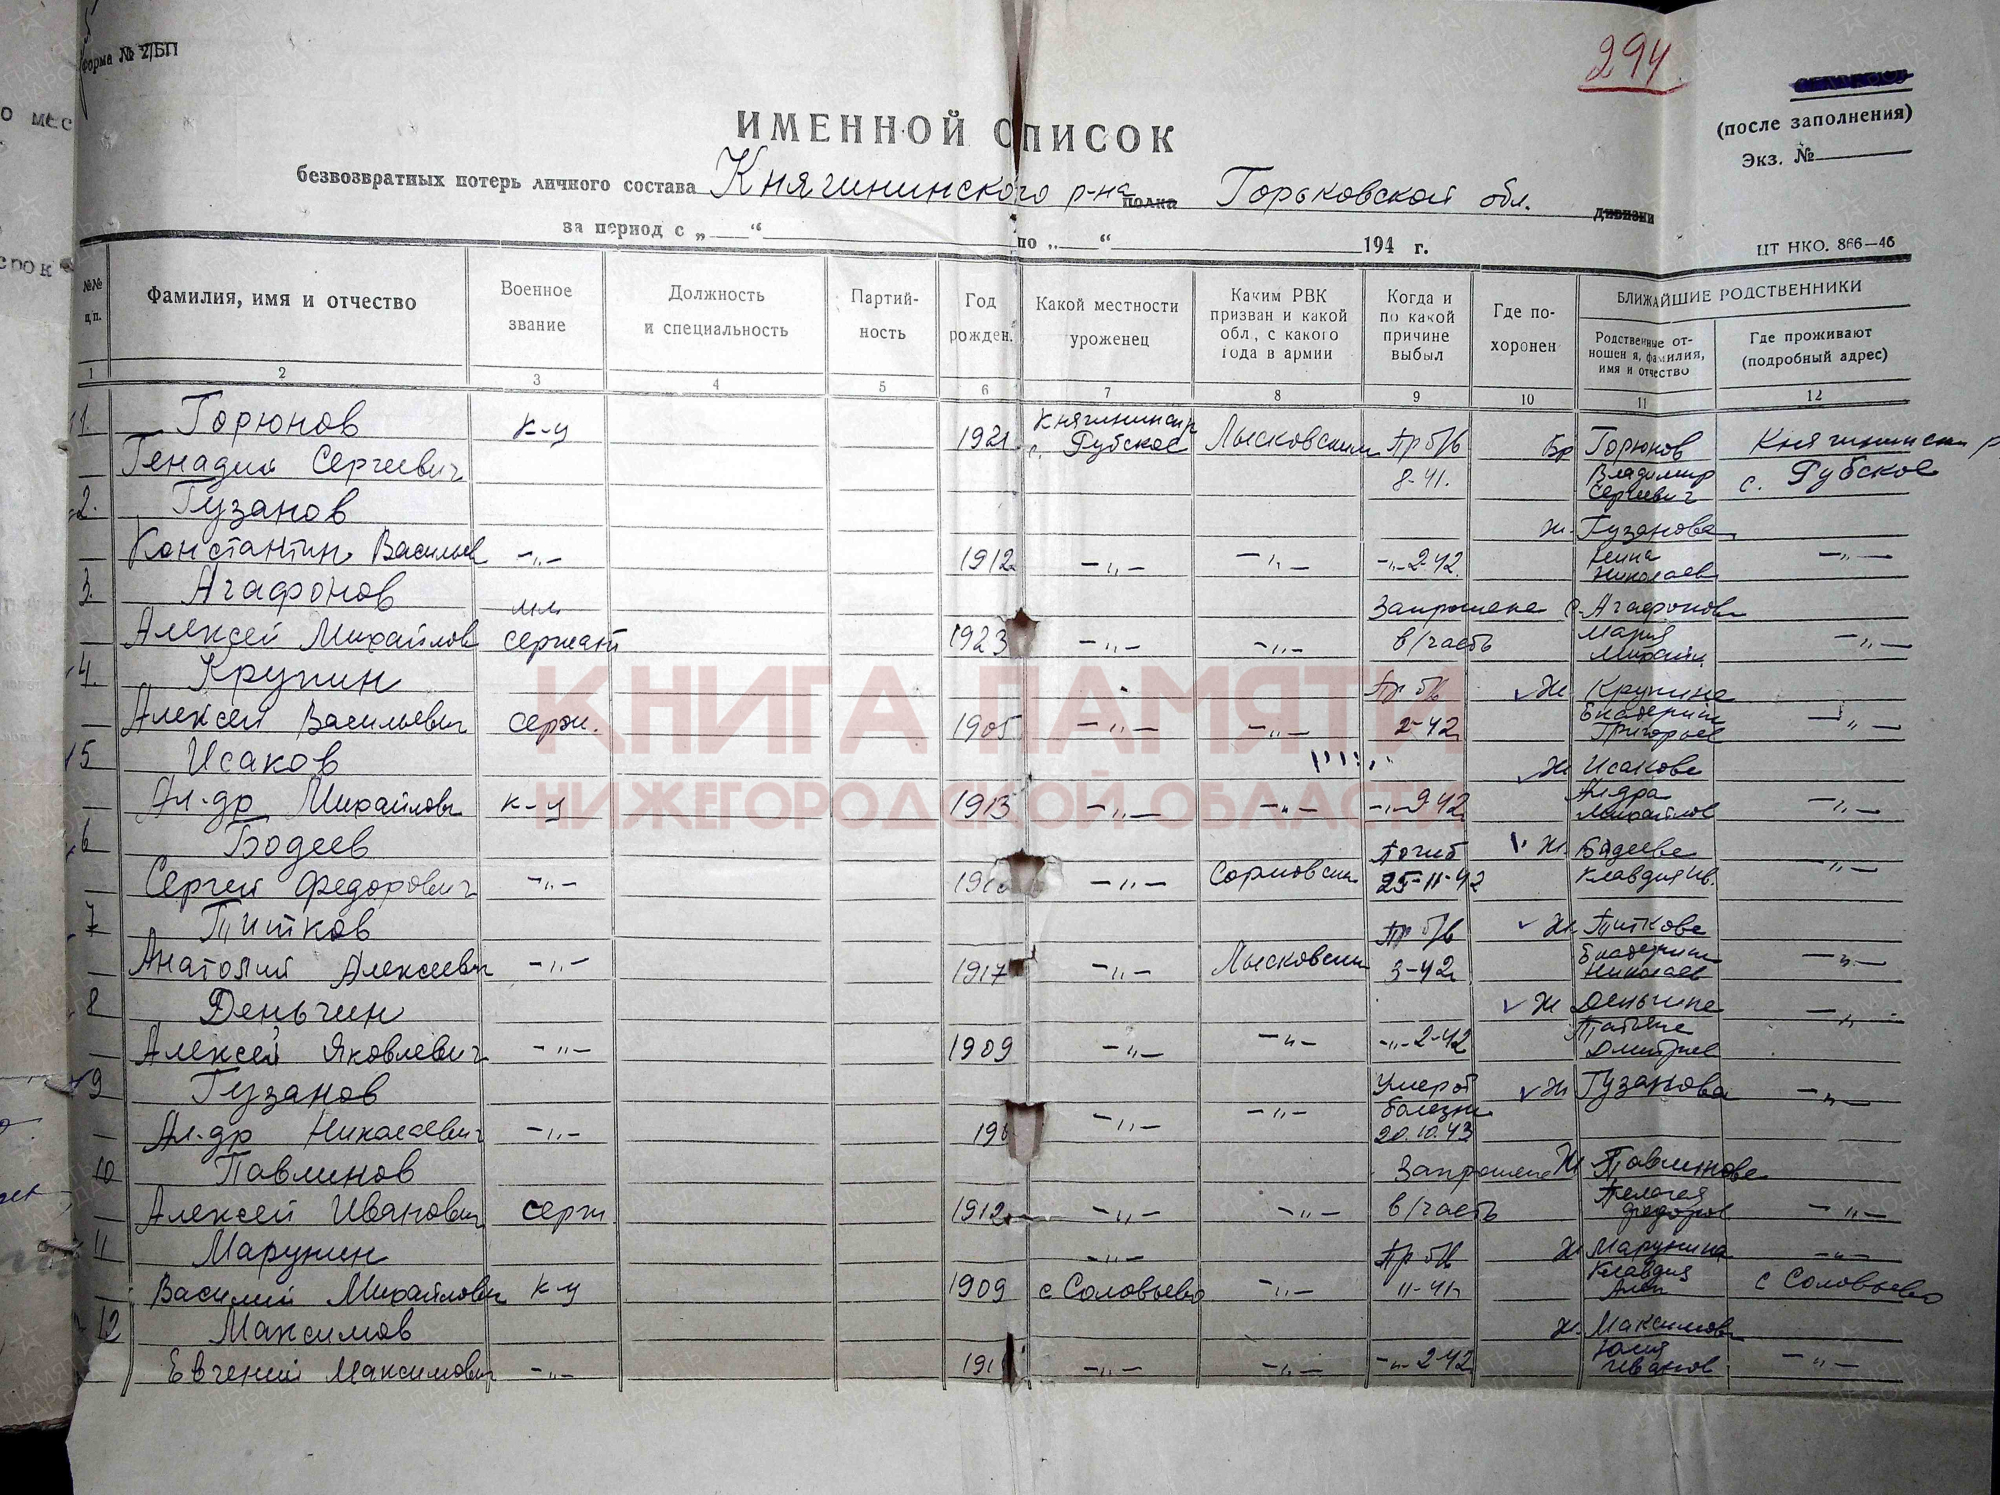 форма № 2/БП
294
(после заполнения)
Экз. №
ИМЕННОЙ СПИСОК
безвозвратных потерь личного состава Княгининского р-на полка Горьковской обл. дивизии
за период с „ “ по „ “ 194 г.
ЦТ НКО. 866—46
№№ п/п. Фамилия, имя и отчество Военное звание Должность и специальность Партий- ность Год рожден. Какой местности уроженец Каким РВК призван и какой обл., с какого года в армии Когда и по какой причине выбыл Где по- хоронен БЛИЖАЙШИЕ РОДСТВЕННИКИ
Родственные от- ношения, фамилия, имя и отчество Где проживают (подробный адрес)
1 2 3 4 5 6 7 8 9 10 11 12
1. Горюнов к-ц 1921 Княгининск р с. Рубское Лысковским Пр б/в Бр Горюнов Княгининск р
Генадий Сергеевич 8-41. Владимир Сергеевич с. Рубское
2. Гузанов ж. Гузанова
Константин Васильев -„- 1912 -„- -„- -„- 2-42. Николаев -„-
3. Агафонов мл. Запрошена Агафонов
Алексей Михайлов сержант 1923 -„- -„- в/часть Мария Михайл. -„-
4. Крупин Пр б/в ж Крупина
Алексей Васильевич серж. 1905 -„- -„- 2-42 Екатерин Григорьев -„-
5 Исаков ж Исакова
Ал-др Михайлов к-ц 1913 -„- -„- -„- 9-42 Ал-дра Михайлов -„-
6 Бодеев Погиб ж. Бадеева
Сергей Федорович -„- -„- Сормовским 25-11-42 Клавдия Ив. -„-
7 Титков Пр б/в ж Титкова
Анатолий Алексеевич -„- 1917 -„- Лысковским 3-42 Екатерин Николаев -„-
8 Деньгин ж Деньгина
Алексей Яковлевич -„- 1909 -„- -„- -„- 2-42 Татьяна Дмитриев -„-
9 Гузанов Умер от ж Гузанова
Ал-др Николаевич -„- 19 -„- -„- болезни 20.10.43 -„-
10 Павлинов Запрошена ж Павлинова
Алексей Иванович серж. 1912 -„- -„- в/часть Пелагея Федоров -„-
11 Марунин -„- Пр б/в ж Марунина -„-
Василий Михайлович к-ц 1909 с Соловьево -„- 11-41 Клавдия Алек с Соловьево
12 Максимов ж. Максимов
Евгений Максимович -„- 191 -„- -„- -„- 2-42 Юлия Иванов -„-
КНИГА ПАМЯТИ
НИЖЕГОРОДСКОЙ ОБЛАСТИ